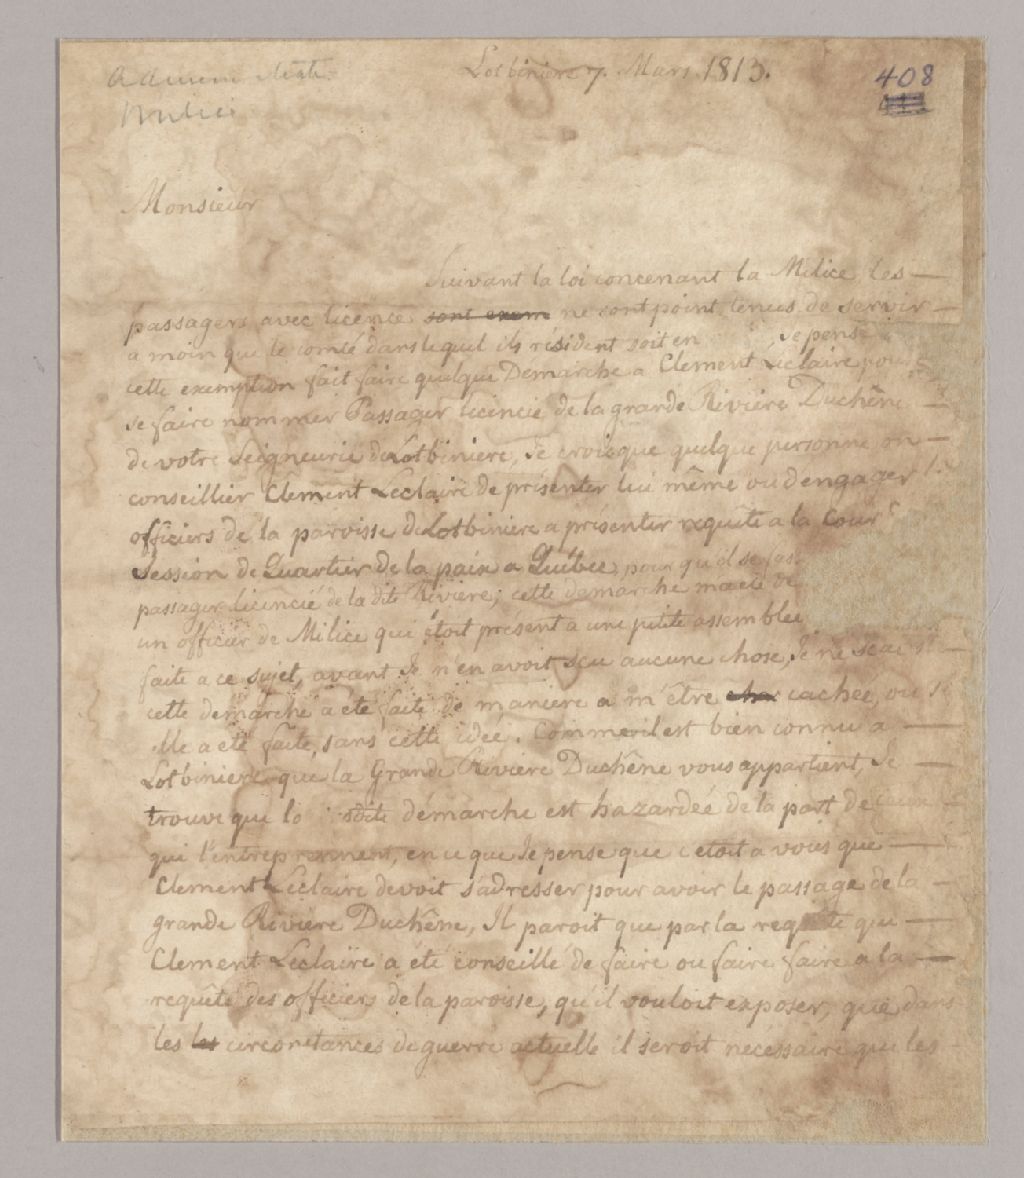 Lotbiniere 7. Mars 1813.
408
Monsieur
Suivant la loi concenant la Milice les
passagers avec licence sont exem ne sont point tenus de servir
a moin que le comté dans lequel ils résident soit en Je pense
cette exemption fait faire quelque Demarche a Clement Leclaire pour
se faire nommer Passager licencié de la grande Riviére Duchêne
de votre seigneurie de Lotbiniere, Je crois que quelque personne on
conseillier Clement Leclaire de présenter lui même ou d'engager
officiers de la paroisse de Lotbiniere a présenter requête a la Cour
Session de Quartier de la paix a Québec, pour qu'il se fasse
passager licencié de la dite Riviére; cette demarche
un officier de Milice qui étoit présent a une petite assemblée
faite a ce sujet, avant Je n'en avoit sçu aucune chose, Je ne sçai si
cette demarche a été faite de maniere a m'être cachée, ou si
elle a été faite, sans cette idée. Comme il est bien connu a
Lotbiniere que la Grande Riviére Duchêne vous appartient, Je
trouve que démarche est hazardeé de la part de
qui l'entreprennent, en ce que Je pense que c'etoit a vous que
Clement Leclaire devoit s'adresser pour avoir le passage de la
grande Riviére Duchêne, Il paroit que par la requête que
Clement Leclaire a été conseillé de faire ou faire faire a la
requête des officiers de la paroisse, qu'il vouloit exposer, que dans
les les circonstances de guerre actuelle il seroit nécessaire que les